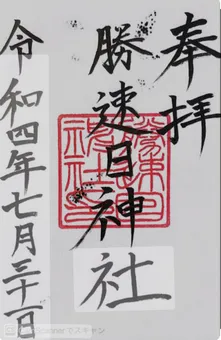 奉拝
勝速日神社
令和四年七月三十一日
でスキャン